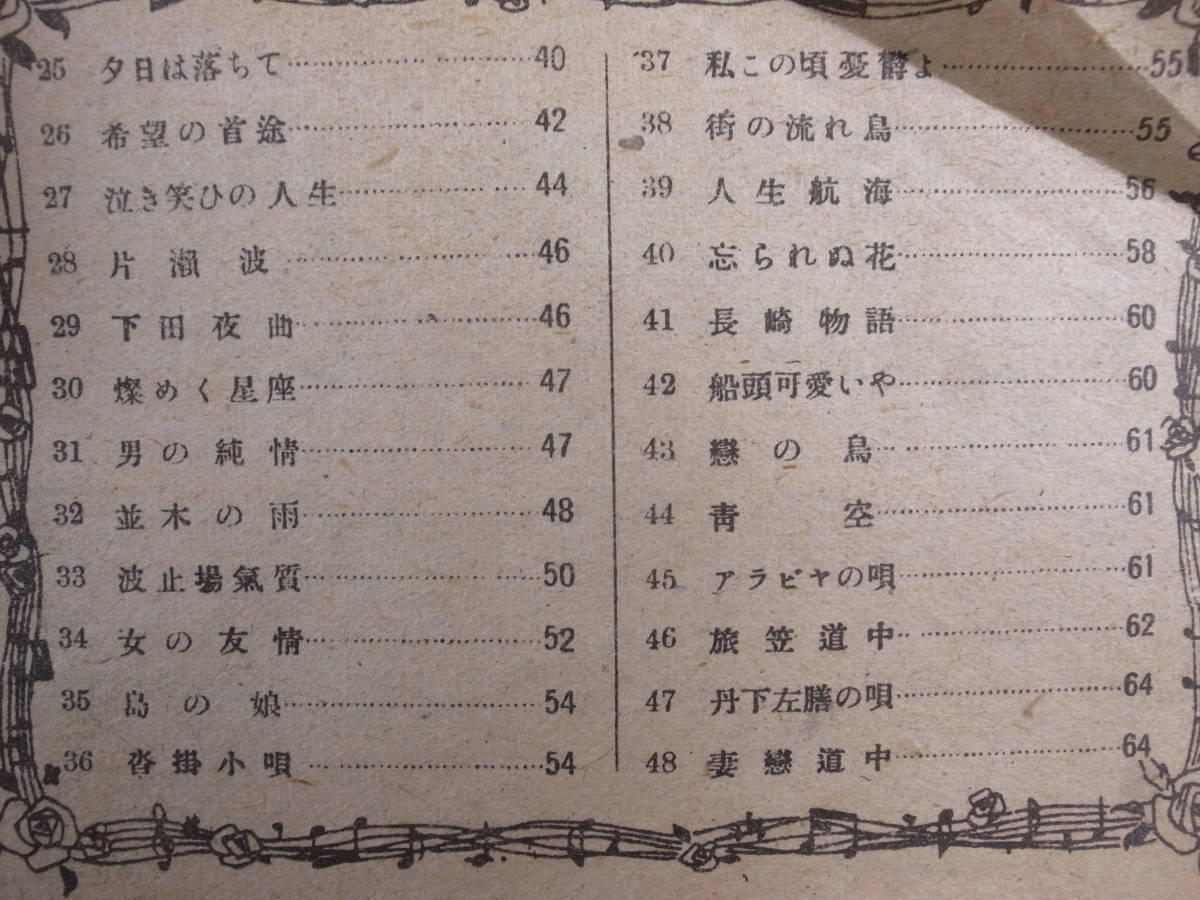 25 夕日は落ちて……40
26 希望の首途……42
27 泣き笑ひの人生……44
28 片瀬波……46
29 下田夜曲……46
30 燦めく星座……47
31 男の純情……47
32 並木の雨……48
33 波止場氣質……50
34 女の友情……52
35 島の娘……54
36 沓掛小唄……54
37 私この頃憂欝よ……55
38 街の流れ鳥……55
39 人生航海……56
40 忘られぬ花……58
41 長崎物語……60
42 船頭可愛いや……60
43 戀の鳥……61
44 青空……61
45 アラビヤの唄……61
46 旅笠道中……62
47 丹下左膳の唄……64
48 妻戀道中……64